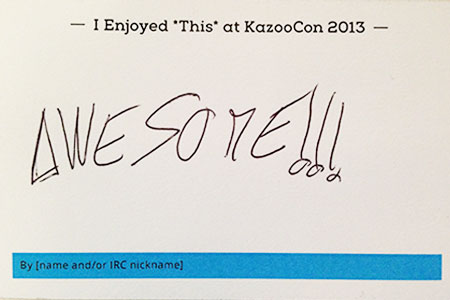 — I Enjoyed *This* at KazooCon 2013 —
AWESOME!!!
By [name and/or IRC nickname]